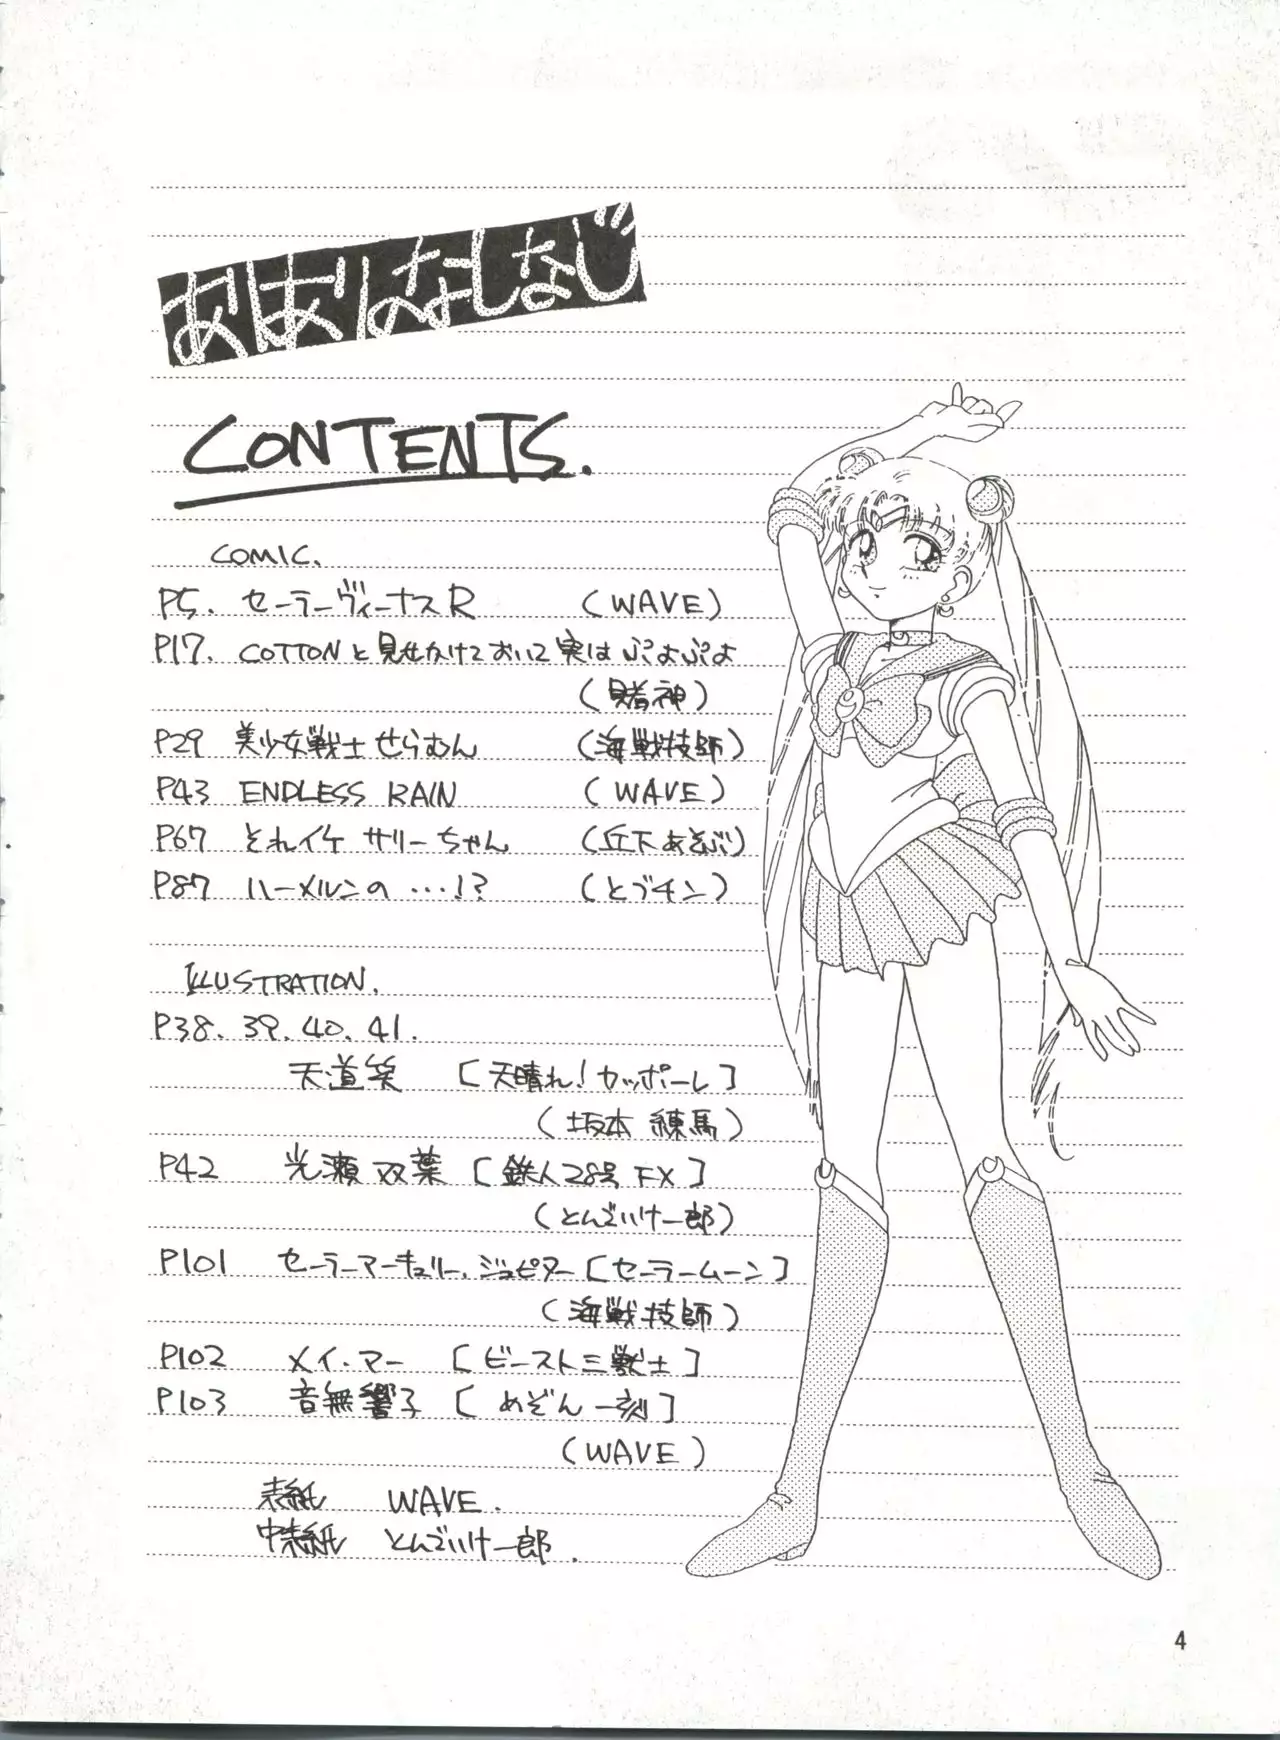 CONTENTS.
COMIC.
P5. セーラーヴィーナスR (WAVE)
P17. COTTONと見せかけておいて実はぷよぷよ
(賭神)
P29 美少女戦士せらむん (海戦技師)
P43 ENDLESS RAIN (WAVE)
P67 それイケサリーちゃん (丘下あそぶ)
P87 ハーメルンの…!? (とプチン)
ILLUSTRATION.
P38. 39. 40. 41.
天道笑 [天晴れ!カッポーレ]
(坂本 練馬)
P42 光瀬 双葉 [鉄人28号FX]
(とんでいけ一郎)
P101 セーラーマーキュリー.ジュピター[セーラームーン]
(海戦技師)
P102 メイ・マー [ビースト三獣士]
P103 音無響子 [めぞん一刻]
(WAVE)
表紙 WAVE.
中表紙 とんでいけ一郎.
4